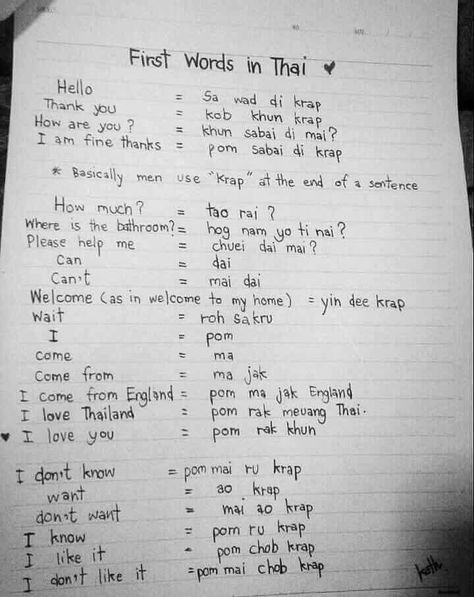 First Words in Thai ♥
Hello = Sa wad di krap
Thank you = kob khun krap
How are you ? = khun sabai di mai?
I am fine thanks = pom sabai di krap
* Basically men use "krap" at the end of a sentence
How much? = tao rai ?
Where is the bathroom? = hog nam yo ti nai?
Please help me = chuei dai mai?
Can = dai
Can't = mai dai
Welcome (as in welcome to my home) = yin dee krap
Wait = roh sakru
I = pom
come = ma
Come from = ma jak
I come from England = pom ma jak England
I love Thailand = pom rak meuang Thai.
♥ I love you = pom rak khun
I don't know = pom mai ru krap
want = ao krap
don't want = mai ao krap
I know = pom ru krap
I like it = pom chob krap
I don't like it = pom mai chob krap